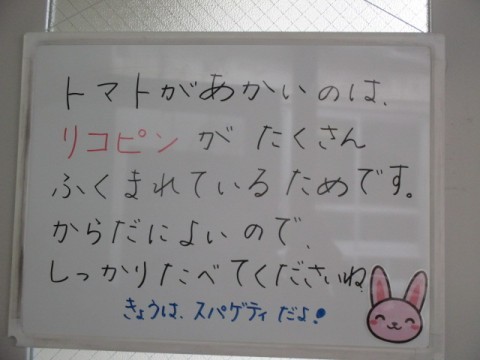 トマトがあかいのは、
リコピンが たくさん
ふくまれているためです。
からだによいので、
しっかりたべてくださいね
きょうは、スパゲティだよ!